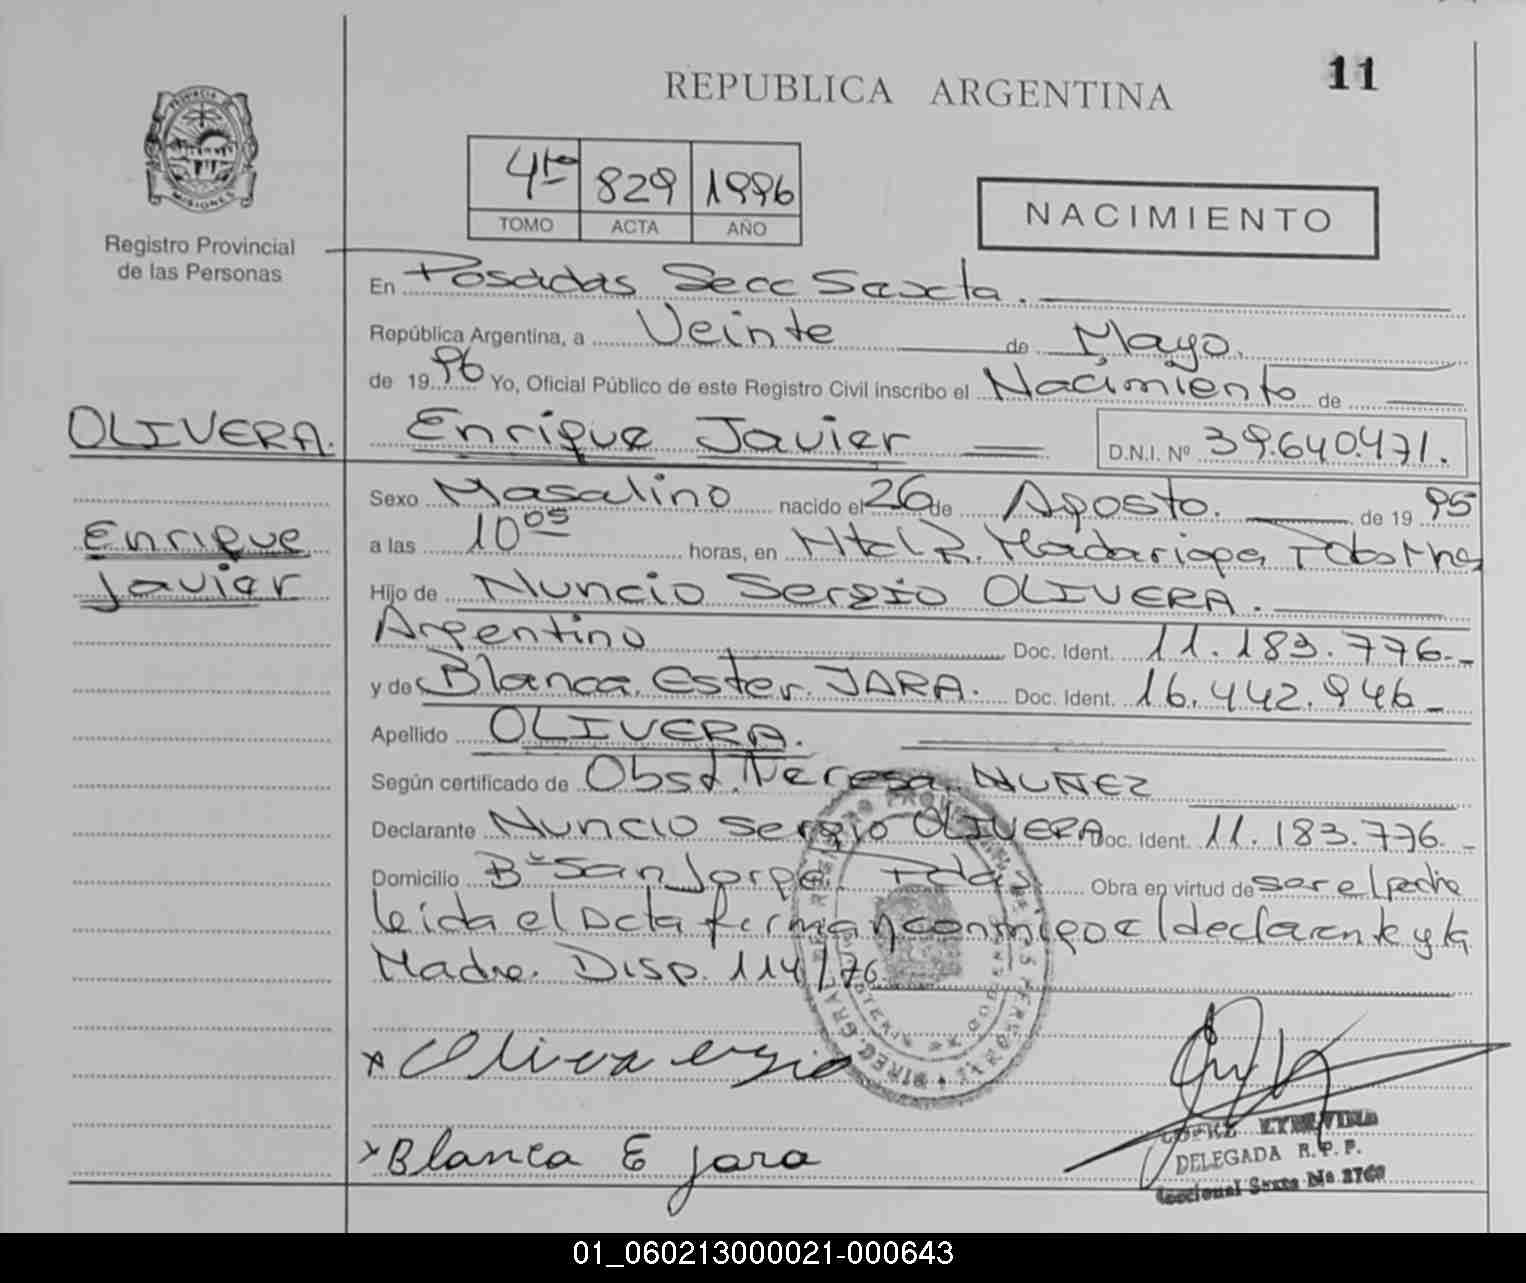 11
REPUBLICA ARGENTINA
PROVINCIA DE MISIONES
Registro Provincial
de las Personas
4to 829 1996
TOMO ACTA AÑO
NACIMIENTO
En Posadas Secc Sexta.
República Argentina, a Veinte de Mayo.
de 1996 Yo, Oficial Público de este Registro Civil inscribo el Nacimiento de
OLIVERA. Enrique Javier D.N.I. Nº 39.640.471.
Enrique
Javier
Sexo Masculino nacido el 26 de Agosto. de 1995
a las 10 05 horas, en Htal R. Madariaga
Hijo de Nuncio Sergio OLIVERA.
Argentino Doc. Ident. 11.183.776.-
y de Blanca Ester JARA. Doc. Ident. 16.442.946-
Apellido OLIVERA.
Según certificado de Obst. Teresa NUÑEZ
Declarante Nuncio Sergio OLIVERA Doc. Ident. 11.183.776.-
Domicilio Bº San Jorge. Pdas Obra en virtud de ser el padre
leida el Acta firman conmigo el declarante y la
Madre. Disp. 114/76
x Olivera ergio
x Blanca E jara
DELEGADA R.P.P.
Seccional Sexta
01_060213000021-000643